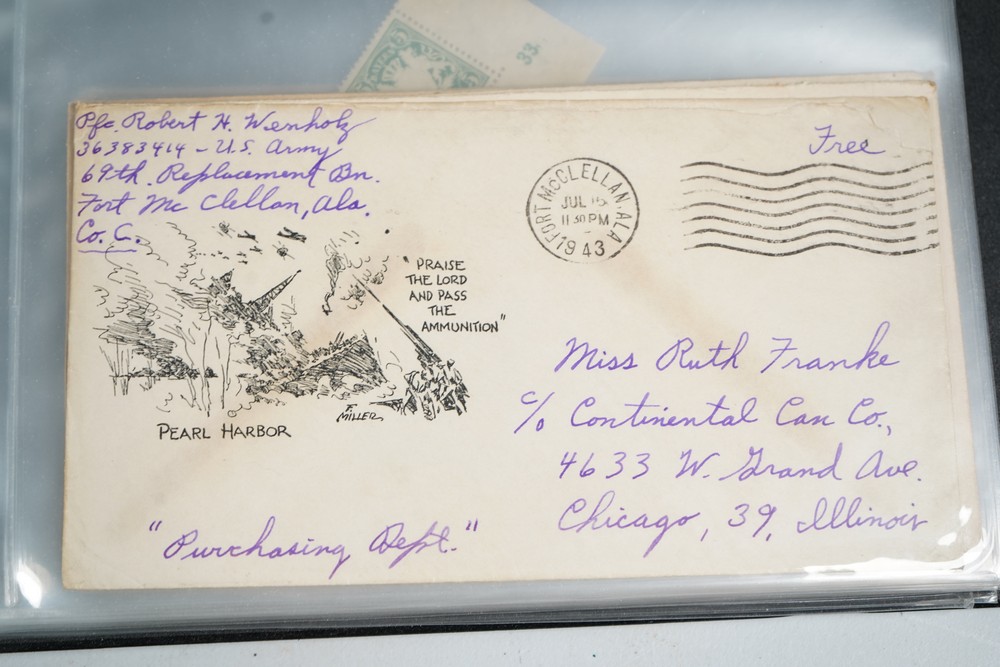 Pfc. Robert H. Wenholz
36383414 - U.S. Army
69th. Replacement Bn.
Fort Mc Clellan, Ala.
Co. C.
Free
FORT MCCLELLAN, ALA
JUL
11 30 PM
1943
"PRAISE
THE LORD
AND PASS
THE
AMMUNITION"
F.
MILLER
PEARL HARBOR
Miss Ruth Franke
c/o Continental Can Co.,
4633 W. Grand Ave.
Chicago, 39, Illinois
"Purchasing Dept."
33
5